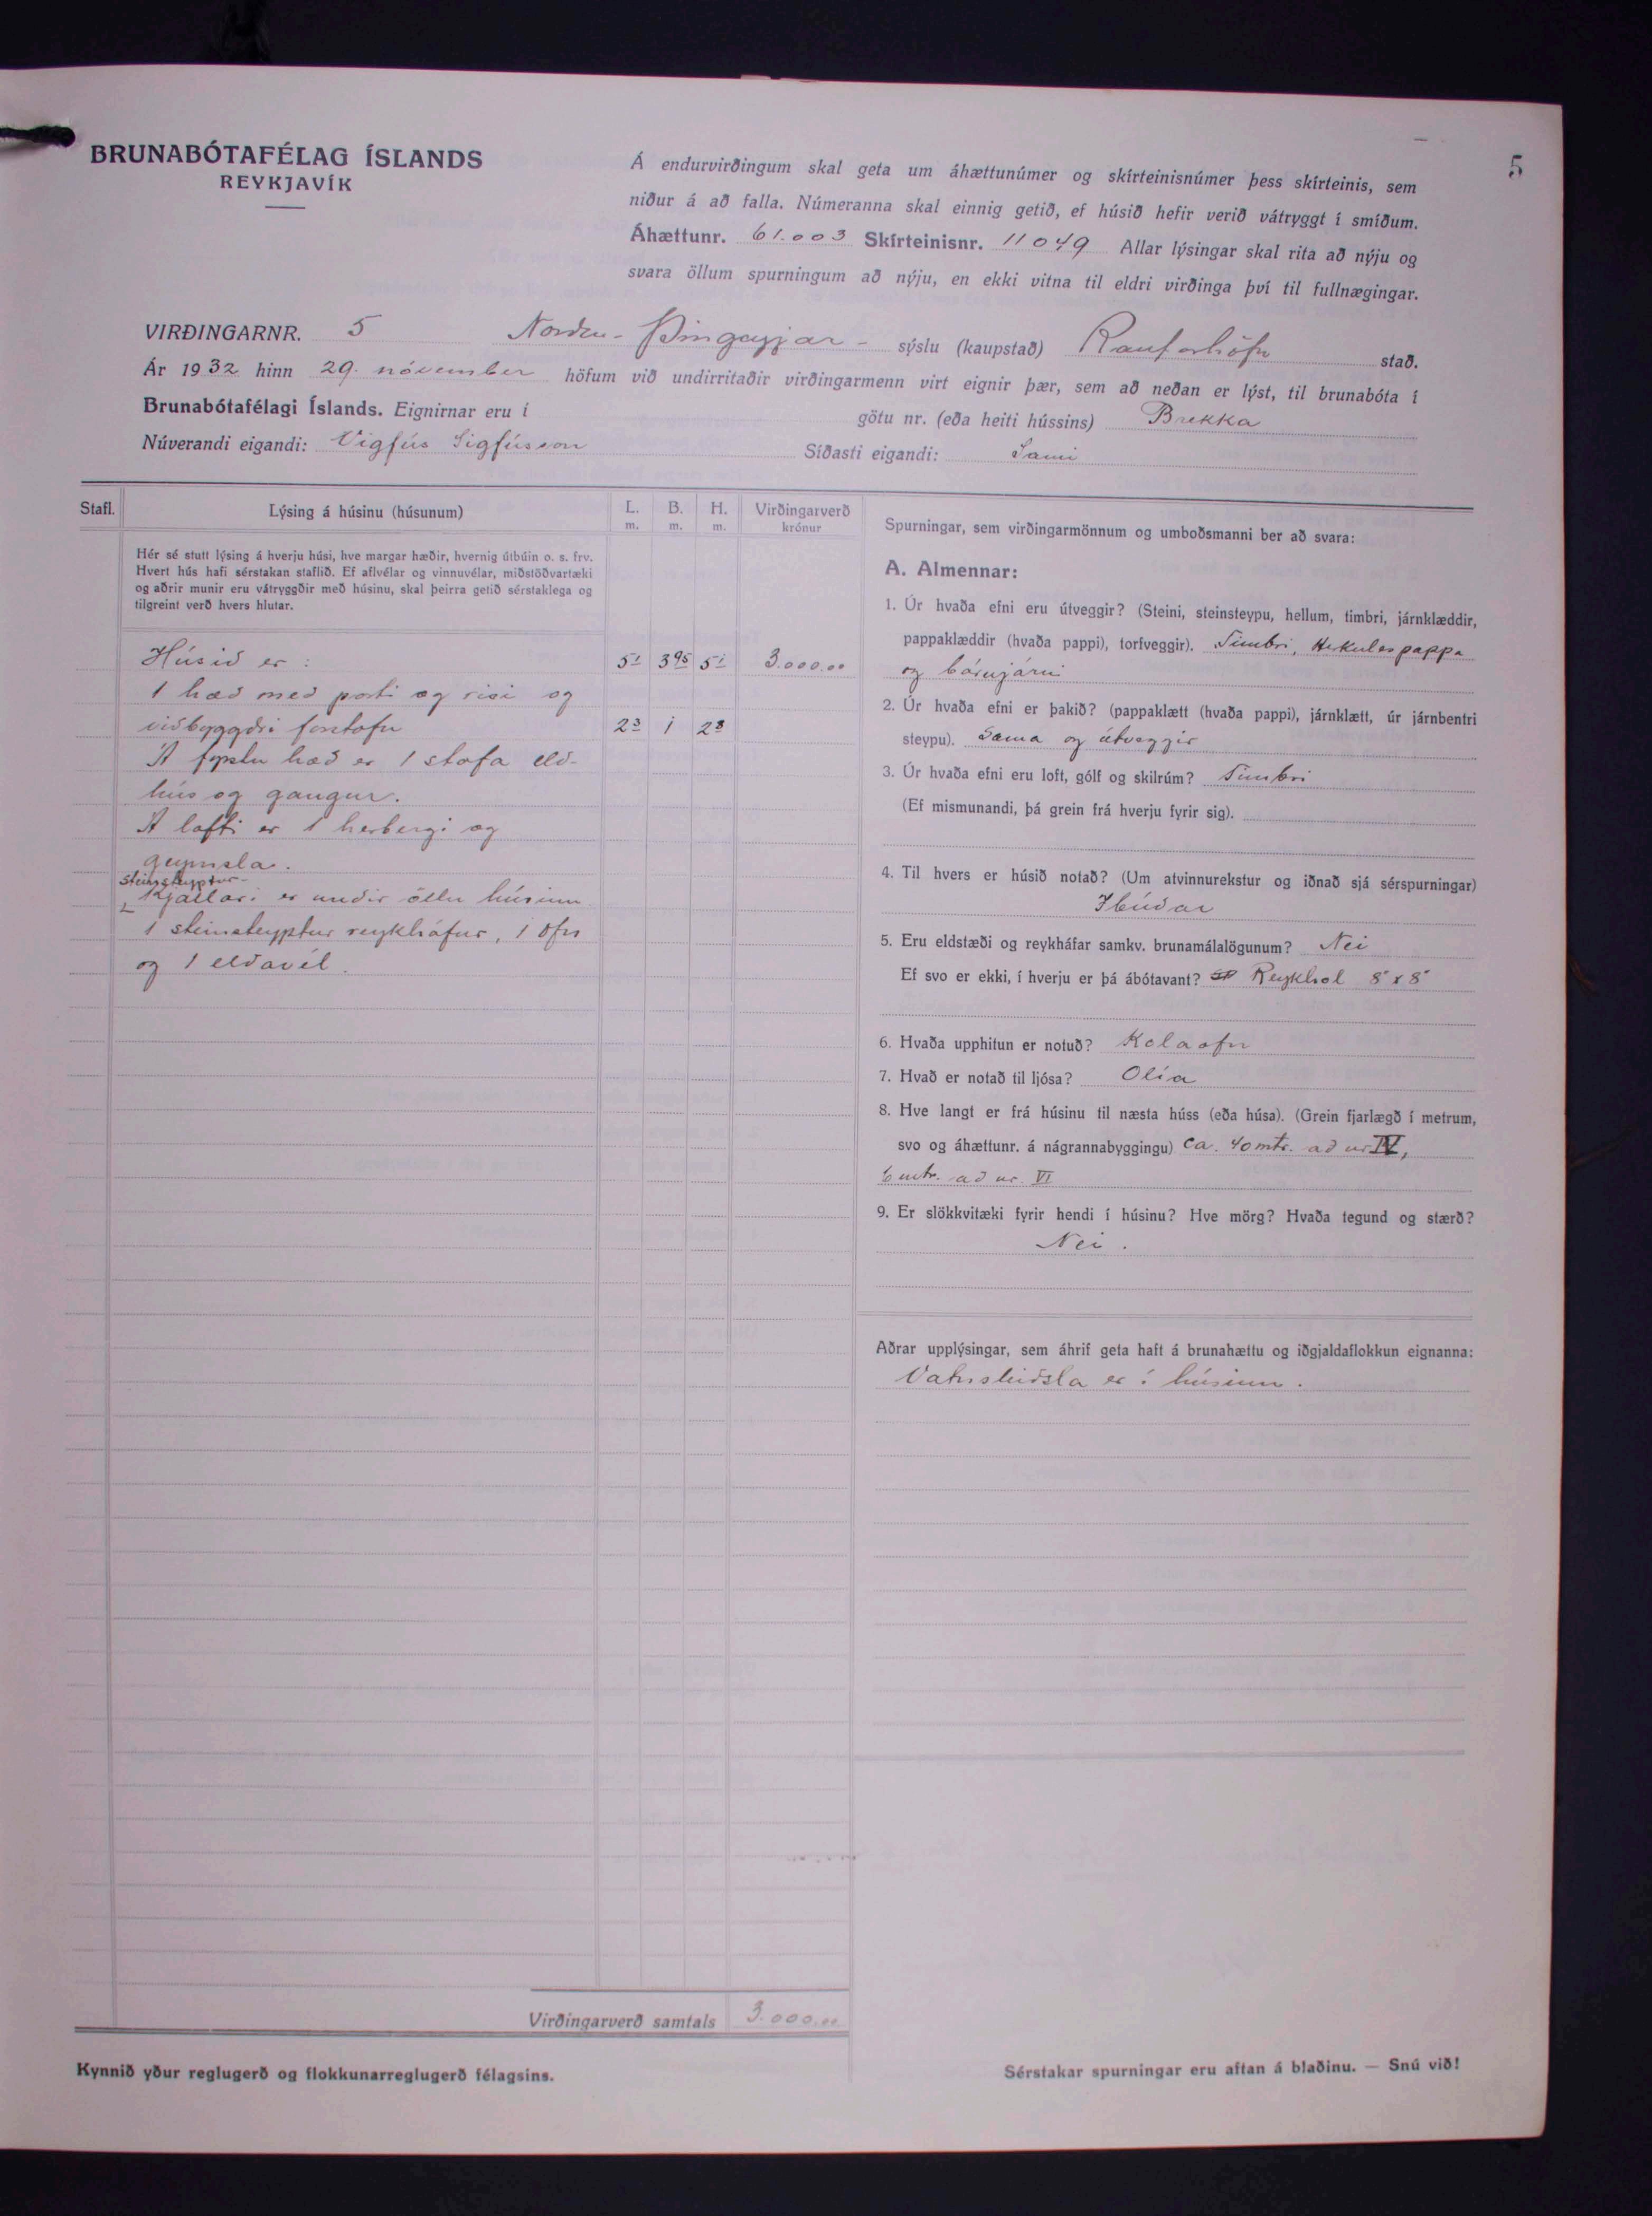 5
BRUNABÓTAFÉLAG ÍSLANDS
REYKJAVÍK
Á endurvirðingum skal geta um áhættunúmer og skírteinisnúmer þess skírteinis, sem
niður á að falla. Númeranna skal einnig getið, ef húsið hefir verið vátryggt í smíðum.
Áhættunr. 61.003 Skírteinisnr. 11049 Allar lýsingar skal rita að nýju og
svara öllum spurningum að nýju, en ekki vitna til eldri virðinga því til fullnægingar.
VIRÐINGARNR. 5 Norður-Þingeyjar- sýslu (kaupstað) Raufarhöfn stað.
Ár 1932 hinn 29. nóvember höfum við undirritaðir virðingarmenn virt eignir þær, sem að neðan er lýst, til brunabóta í
Brunabótafélagi Íslands. Eignirnar eru í götu nr. (eða heiti hússins) Brekka
Núverandi eigandi: Vigfús Sigfússon Síðasti eigandi: Sami
Stafl. Lýsing á húsinu (húsunum) L. m. B. m. H. m. Virðingarverð krónur
Hér sé stutt lýsing á hverju húsi, hve margar hæðir, hvernig útbúin o. s. frv.
Hvert hús hafi sérstakan staflið. Ef aflvélar og vinnuvélar, miðstöðvartæki
og aðrir munir eru vátryggðir með húsinu, skal þeirra getið sérstaklega og
tilgreint verð hvers hlutar.
Húsið er: 5¹ 3⁹⁵ 5¹ 3.000.00
1 hæð með porti og risi og
viðbyggðri forstofu 2³ 1 2³
Á fyrstu hæð er 1 stofa eld-
hús og gangur.
Á lofti er 1 herbergi og
geymsla.
steinsteyptur
Kjallari er undir öllu húsinu
1 steinsteyptur reykháfur, 1 ofn
og 1 eldavél.
Virðingarverð samtals 3.000.00
Kynnið yður reglugerð og flokkunarreglugerð félagsins.
Spurningar, sem virðingarmönnum og umboðsmanni ber að svara:
A. Almennar:
1. Úr hvaða efni eru útveggir? (Steini, steinsteypu, hellum, timbri, járnklæddir,
pappaklæddir (hvaða pappi), torfveggir). Timbri, Herkulespappa
og bárujárni
2. Úr hvaða efni er þakið? (pappaklætt (hvaða pappi), járnklætt, úr járnbentri
steypu). Sama og útveggir
3. Úr hvaða efni eru loft, gólf og skilrúm? Timbri
(Ef mismunandi, þá grein frá hverju fyrir sig).
4. Til hvers er húsið notað? (Um atvinnurekstur og iðnað sjá sérspurningar)
Íbúðar
5. Eru eldstæði og reykháfar samkv. brunamálalögunum? Nei
Ef svo er ekki, í hverju er þá ábótavant? Reykhol 8" x 8"
6. Hvaða upphitun er notuð? Kolaofn
7. Hvað er notað til ljósa? Olía
8. Hve langt er frá húsinu til næsta húss (eða húsa). (Grein fjarlægð í metrum,
svo og áhættunr. á nágrannabyggingu) Ca. 40 mtr. að nr IV,
6 mtr. að nr. VI
9. Er slökkvitæki fyrir hendi í húsinu? Hve mörg? Hvaða tegund og stærð?
Nei.
Aðrar upplýsingar, sem áhrif geta haft á brunahættu og iðgjaldaflokkun eignanna:
Vatnsleiðsla er í húsinu.
Sérstakar spurningar eru aftan á blaðinu. — Snú við!